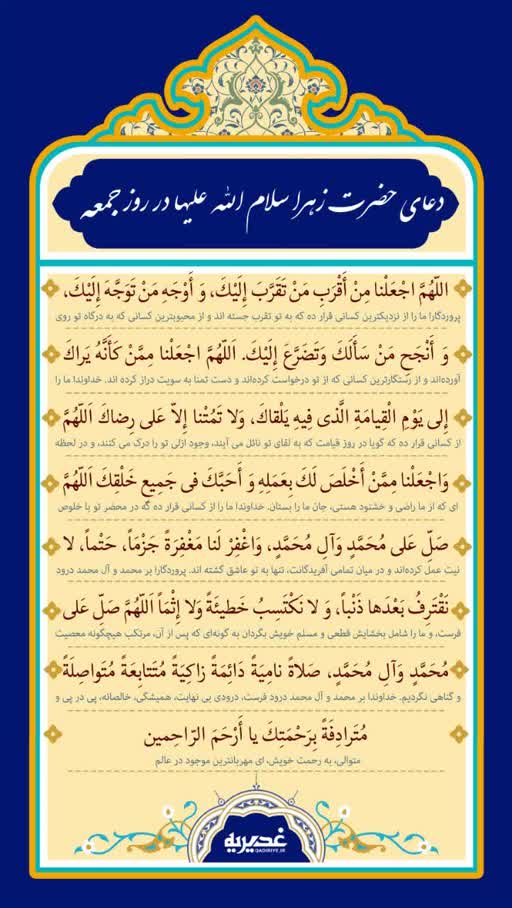 دعای حضرت زهرا سلام الله علیها در روز جمعه
اللّهُمَّ اجْعَلْنا مِنْ أَقْرَبِ مَنْ تَقَرَّبَ إِلَيْكَ، وَ أَوْجَهِ مَنْ تَوَجَّهَ إِلَيْكَ،
پروردگارا ما را از نزدیکترین کسانی قرار ده که به تو تقرب جسته اند و از محبوبترین کسانی که به درگاه تو روی
وَ أَنْجَحِ مَنْ سَأَلَكَ وَتَضَرَّعَ إِلَيْكَ. اَللّهُمَّ اجْعَلْنا مِمَّنْ كَأَنَّهُ يَراكَ
آورده‌اند و از رستگارترین کسانی که از تو درخواست کرده‌اند و دست تمنا به سویت دراز کرده اند. خداوندا ما را
إِلى يَوْمِ الْقِيامَةِ الَّذى فِيهِ يَلْقاكَ، وَلا تَمُتْنا إِلاّ عَلى رِضاكَ اَللّهُمَّ
از کسانی قرار ده که گویا در روز قیامت که به لقای تو نائل می آیند، وجود ازلی تو را درک می کنند، و در لحظه
وَاجْعَلْنا مِمَّنْ أَخْلَصَ لَكَ بِعَمَلِهِ وَ أَحَبَّكَ فى جَمِيعِ خَلْقِكَ اَللّهُمَّ
ای که از ما راضی و خشنود هستی، جان ما را بستان. خداوندا ما را از کسانی قرار ده که در محضر تو با خلوص
صَلِّ عَلى مُحَمَّدٍ وَآلِ مُحَمَّدٍ، وَاغْفِرْ لَنا مَغْفِرَةً جَزْماً، حَتْماً، لا
نیت عمل کرده‌اند و در میان تمامی آفریدگانت، تنها به تو عاشق گشته اند. پروردگارا بر محمد و آل محمد درود
نَقْتَرِفُ بَعْدَها ذَنْباً، وَ لا نَكْتَسِبُ خَطيئَةً وَلا إِثْماً اَللّهُمَّ صَلِّ عَلى
فرست، و ما را شامل بخشایش قطعی و مسلم خویش بگردان به گونه‌ای که پس از آن، مرتکب هیچگونه معصیت
مُحَمَّدٍ وَآلِ مُحَمَّدٍ، صَلاةً نامِيَةً دَائِمَةً زاكِيَةً مُتَتابِعَةً مُتَواصِلَةً
و گناهی نگردیم. خداوندا بر محمد و آل محمد درود فرست، درودی بی نهایت، همیشگی، خالصانه، پی در پی و
مُتَرادِفَةً بِرَحْمَتِكَ يا أَرْحَمَ الرّاحِمين
متوالی، به رحمت خویش، ای مهربانترین موجود در عالم
غدیریه
QADIRIYE.IR